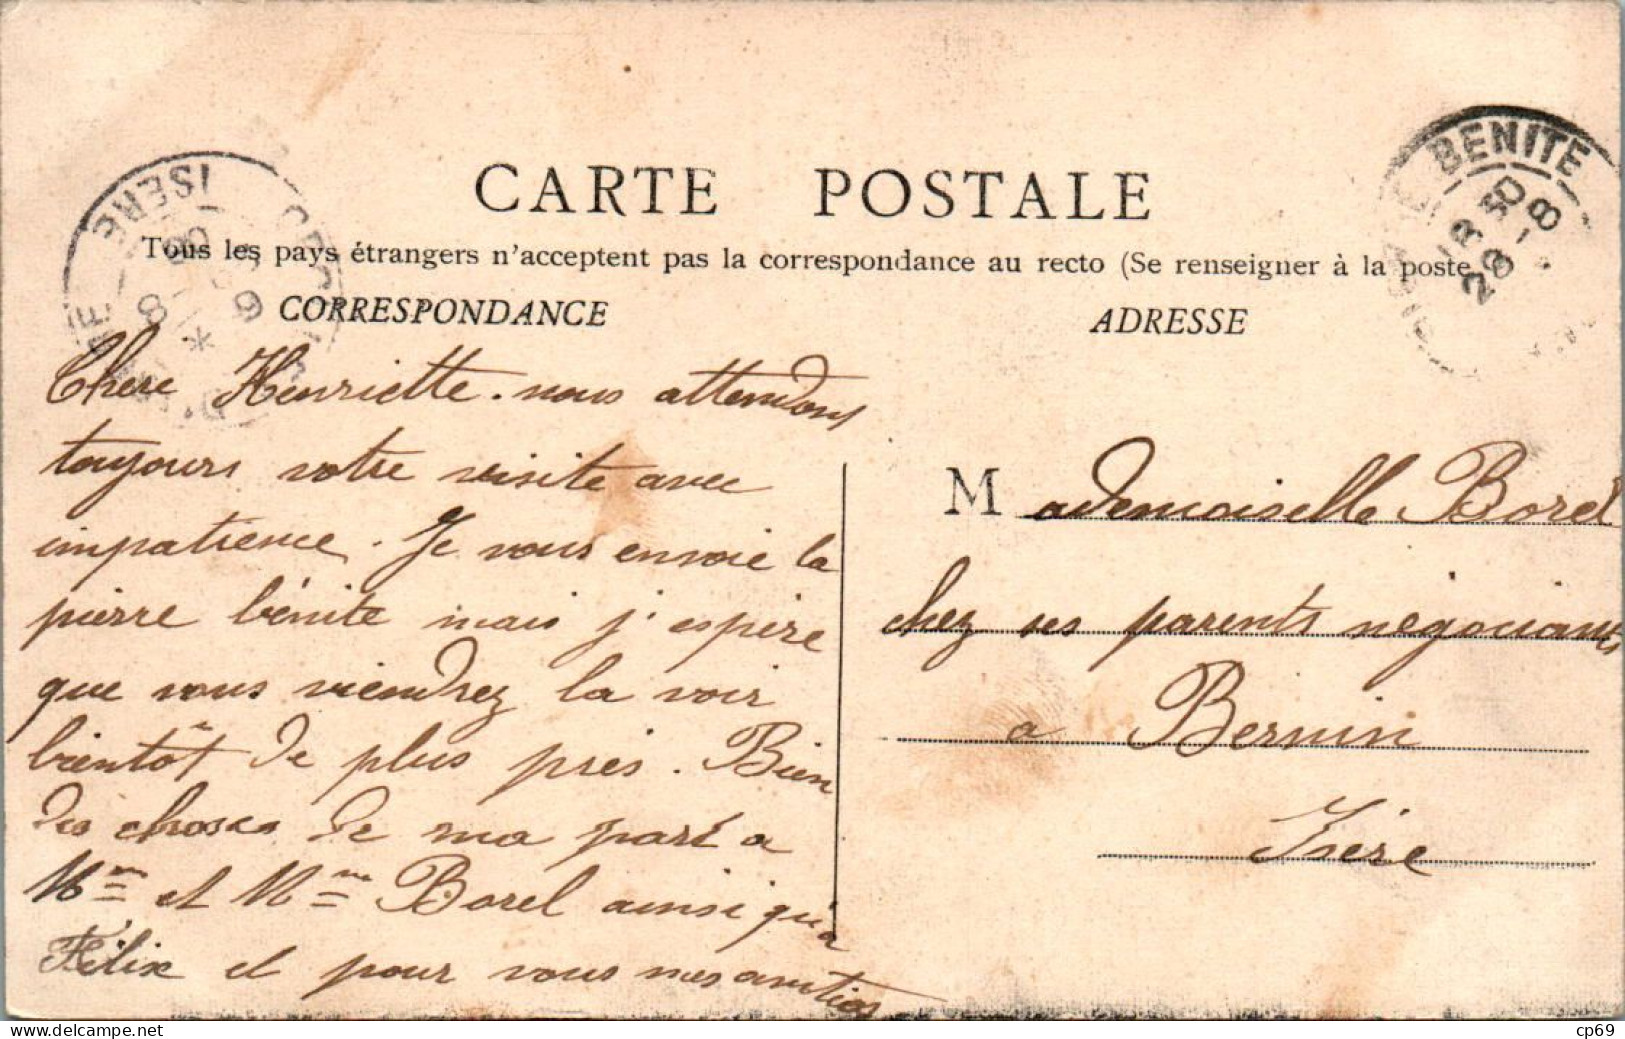 CARTE POSTALE
Tous les pays étrangers n'acceptent pas la correspondance au recto (Se renseigner à la poste
CORRESPONDANCE
ADRESSE
ISERE
BENITE
18 30
28 - 8
Chere Henriette. nous attendons
toujours votre visite avec
impatience. Je vous envoie la
pierre bénite mais j'espère
que vous viendrez la voir
bientôt de plus près. Bien
des choses de ma part a
Mme et Mme Borel ainsi qu'a
Félix et pour vous mes amitiés
Mademoiselle Borel
chez ses parents négociants
a Bernin
Isère
www.delcampe.net
cp69